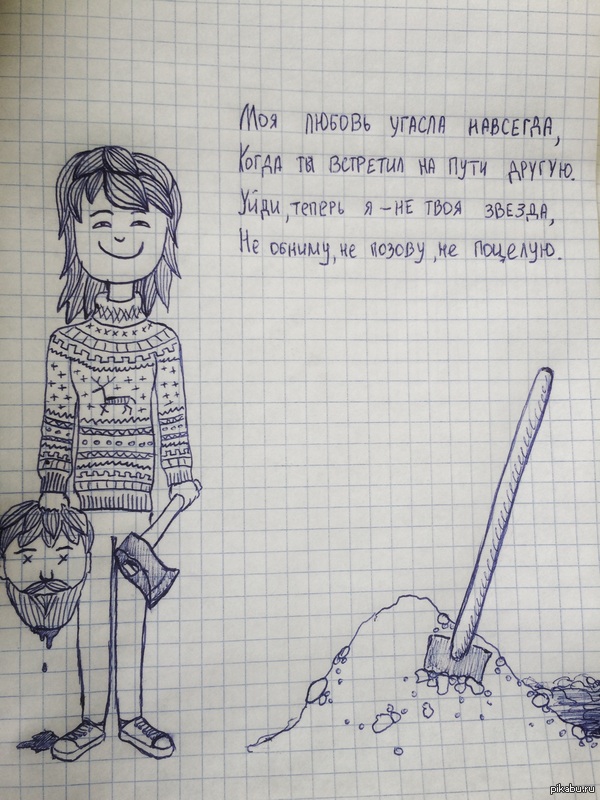 Моя любовь угасла навсегда,
Когда ты встретил на пути другую.
Уйди, теперь я – не твоя звезда,
Не обниму, не позову, не поцелую.
pikabu.ru